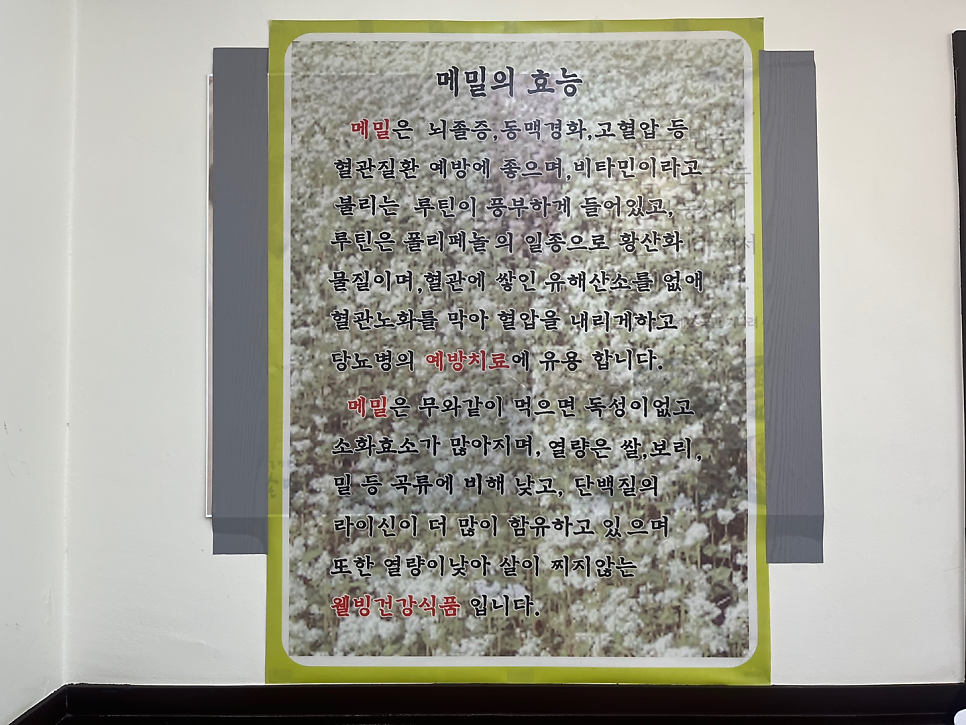 메밀의 효능
메밀은 뇌졸증,동맥경화,고혈압 등
혈관질환 예방에 좋으며,비타민이라고
불리는 루틴이 풍부하게 들어있고,
루틴은 폴리페놀의 일종으로 황산화
물질이며,혈관에 쌓인 유해산소를 없애
혈관노화를 막아 혈압을 내리게하고
당뇨병의 예방치료에 유용 합니다.
메밀은 무와같이 먹으면 독성이없고
소화효소가 많아지며, 열량은 쌀,보리,
밀 등 곡류에 비해 낮고, 단백질의
라이신이 더 많이 함유하고 있으며
또한 열량이낮아 살이 찌지않는
웰빙건강식품 입니다.